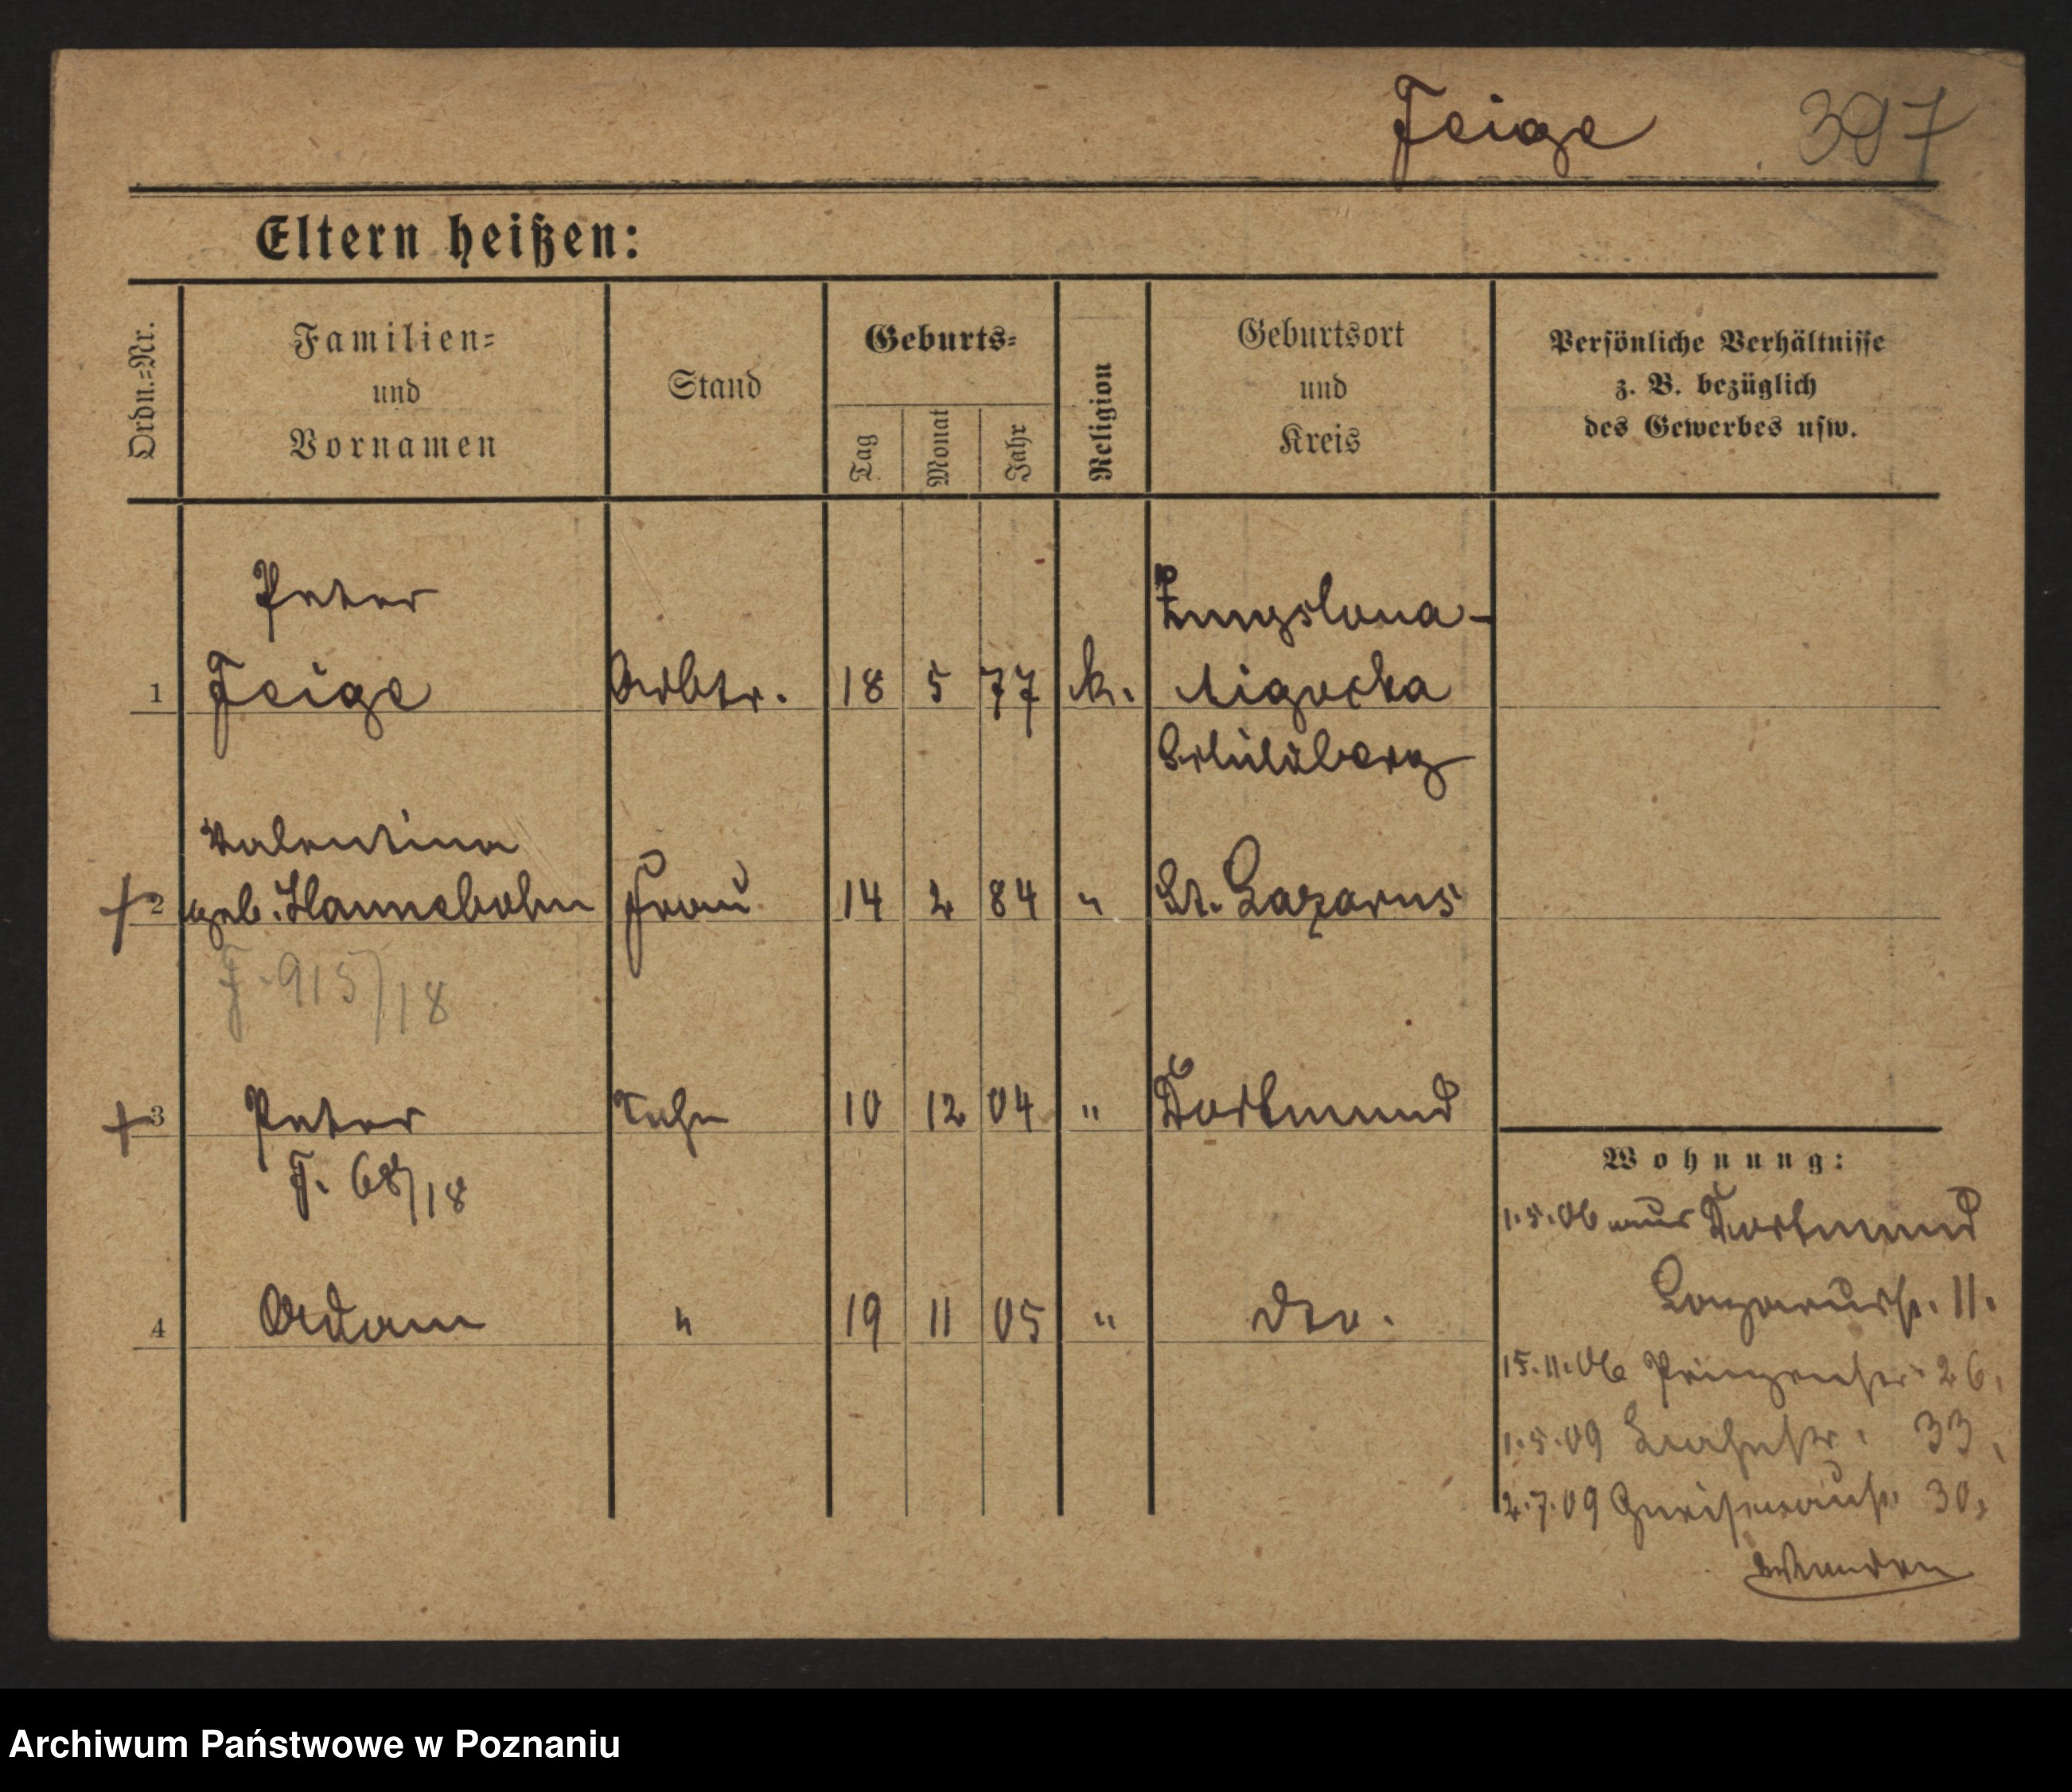 Feige 397
Eltern heißen:
Ordn.=Nr.
Familien=
und
Vornamen
Stand
Geburts=
Tag
Monat
Jahr
Religion
Geburtsort
und
Kreis
Persönliche Verhältnisse
z. B. bezüglich
des Gewerbes usw.
Peter
1 Feige Arbtr. 18 5 77 k. ligocka
Schildberg
Valentina
+ 2 geb. Hannebohm Frau 14 2 84 " St. Lazarus
F. 915/18
+ 3 Peter Sohn 10 12 04 " Dortmund
F. 68/18
4 Adam " 19 11 05 " dto.
Wohnung:
1.5.06 aus Dortmund
Lazarusstr. 11.
15.11.06 Prinzenstr. 26.
1.5.09 33.
2.7.09 Gneisenaustr. 30.
wenden
Archiwum Państwowe w Poznaniu